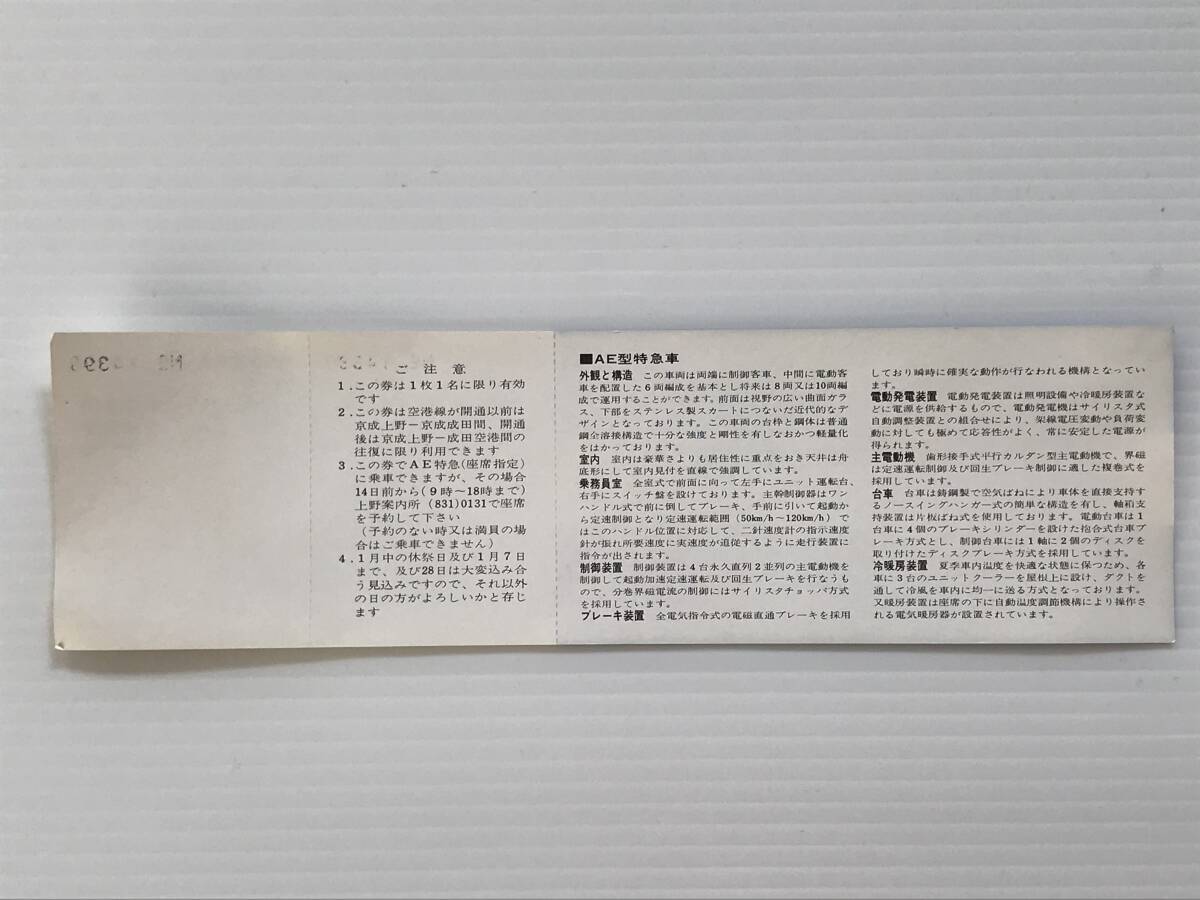 ご注意
1．この券は1枚1名に限り有効
です
2．この券は空港線が開通以前は
京成上野－京成成田間、開通
後は京成上野－成田空港間の
往復に限り利用できます
3．この券でAE特急(座席指定)
に乗車できますが、その場合
14日前から(9時～18時まで)
上野案内所 (831)0131で座席
を予約して下さい
(予約のない時又は満員の場
合はご乗車できません)
4．1月中の休祭日及び1月7日
まで、及び28日は大変込み合
う見込みですので、それ以外
の日の方がよろしいかと存じ
ます
■AE型特急車
外観と構造 この車両は両端に制御客車、中間に電動客
車を配置した6両編成を基本とし将来は8両又は10両編
成で運用することができます。前面は視野の広い曲面ガラ
ス、下部をステンレス製スカートにつないだ近代的なデ
ザインとなっております。この車両の台枠と鋼体は普通
鋼全溶接構造で十分な強度と剛性を有しなおかつ軽量化
をはかっております。
室内 室内は豪華さよりも居住性に重点をおき天井は舟
底形にして室内見付を直線で強調しています。
乗務員室 全室式で前面に向って左手にユニット運転台、
右手にスイッチ盤を設けております。主幹制御器はワン
ハンドル式で前に倒してブレーキ、手前に引いて起動か
ら定速制御となり定速運転範囲(50km/h～120km/h)で
はこのハンドル位置に対応して、二針速度計の指示速度
針が振れ所要速度に実速度が追従するように走行装置に
指令が出されます。
制御装置 制御装置は4台永久直列2並列の主電動機を
制御して起動加速定速運転及び回生ブレーキを行なうも
ので、分巻界磁電流の制御にはサイリスタチョッパ方式
を採用しています。
ブレーキ装置 全電気指令式の電磁直通ブレーキを採用
しており瞬時に確実な動作が行なわれる機構となってい
ます。
電動発電装置 電動発電装置は照明設備や冷暖房装置な
どに電源を供給するもので、電動発電機はサイリスタ式
自動調整装置との組合せにより、架線電圧変動や負荷変
動に対しても極めて応答性がよく、常に安定した電源が
得られます。
主電動機 歯形接手式平行カルダン型主電動機で、界磁
は定速運転制御及び回生ブレーキ制御に適した複巻式を
採用しています。
台車 台車は鋳鋼製で空気ばねにより車体を直接支持す
るノースイングハンガー式の簡単な構造を有し、軸箱支
持装置は片板ばね式を使用しております。電動台車は1
台車に4個のブレーキシリンダーを設けた抱合式台車ブ
レーキ方式とし、制御台車には1軸に2個のディスクを
取り付けたディスクブレーキ方式を採用しています。
冷暖房装置 夏季車内温度を快適な状態に保つため、各
車に3台のユニットクーラーを屋根上に設け、ダクトを
通して冷風を車内に均一に送る方式となっております。
又暖房装置は座席の下に自動温度調節機構により操作さ
れる電気暖房器が設置されています。